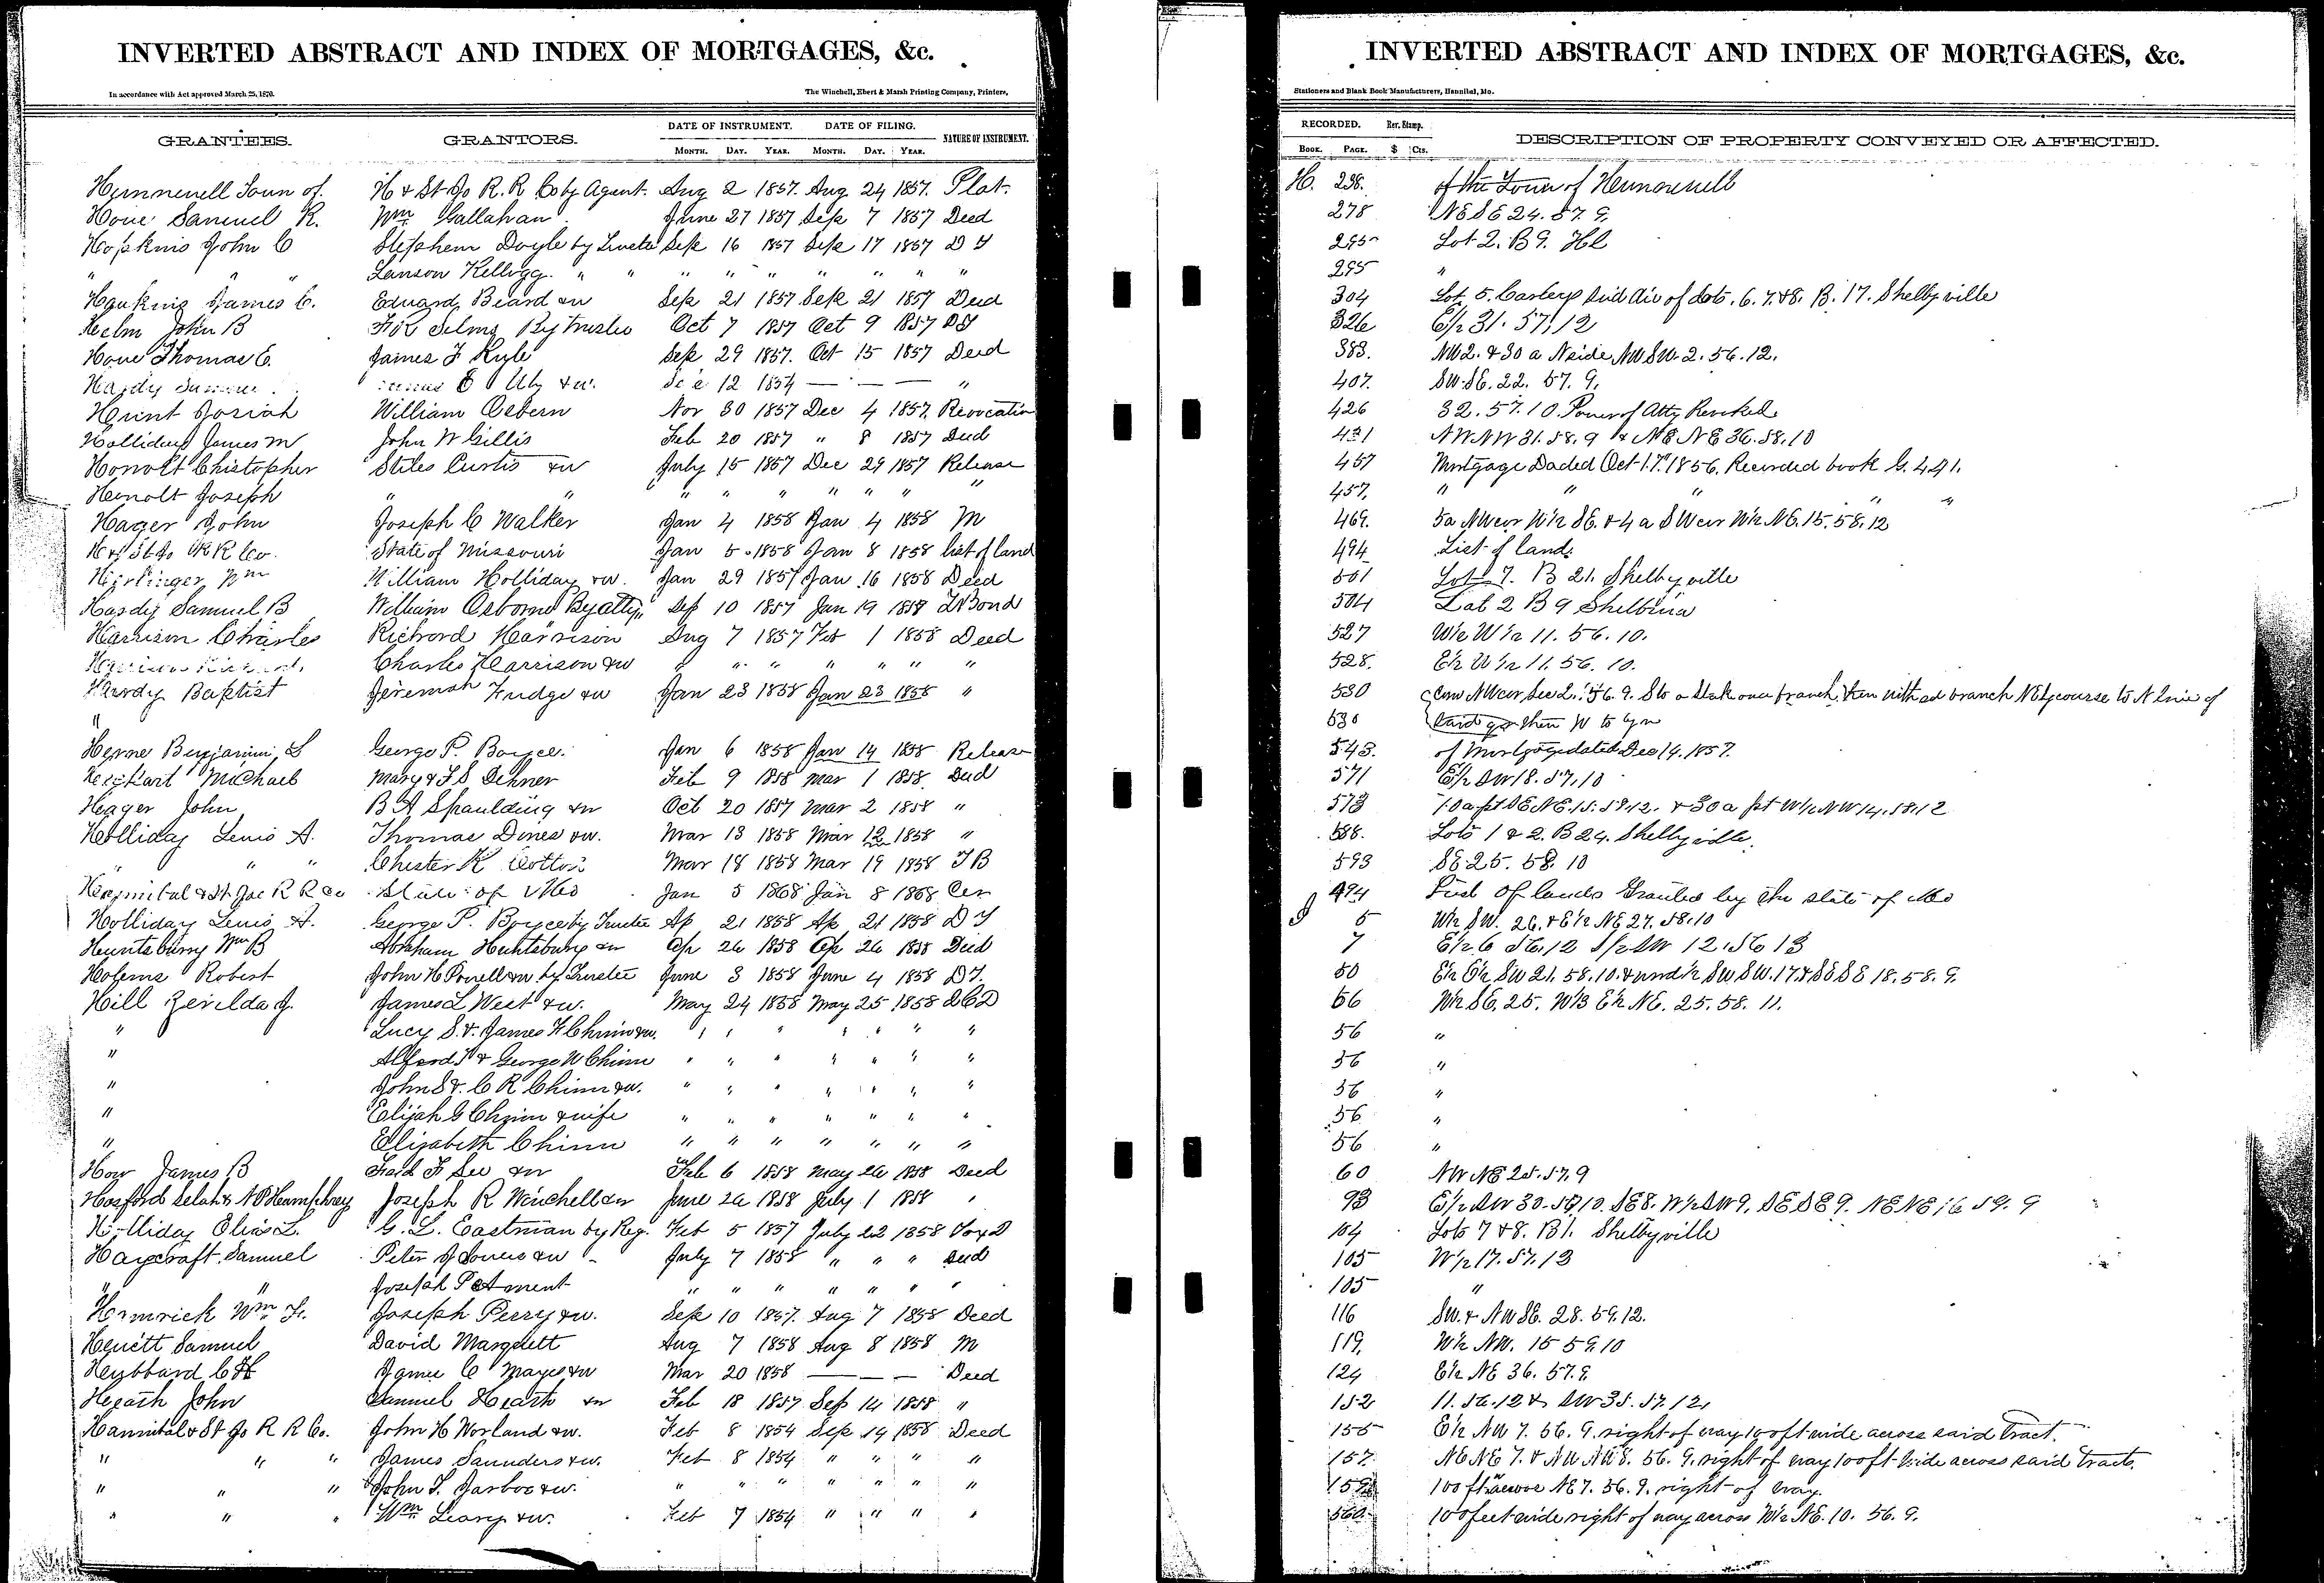 INVERTED ABSTRACT AND INDEX OF MORTGAGES, &c.
In accordance with Act approved March 25, 1870.
The Winchell, Ebert & Marsh Printing Company, Printers,
DATE OF INSTRUMENT. DATE OF FILING.
GRANTEES. GRANTORS. NATURE OF INSTRUMENT.
MONTH. DAY. YEAR. MONTH. DAY. YEAR.
Hunnewell Town of H & St Jo R. R Co by Agent. Aug 2 1857. Aug 24 1857. Plat.
Howe Samuel R. Wm Gallahan June 27 1857 Sep 7 1857 Deed
Hopkins John C Stephen Doyle by Trustee Sep 16 1857 Sep 17 1857 D T
" " " Lanson Kellogg. " " " " " " " " "
Hawkins James C. Edward Beard &w Sep 21 1857 Sep 21 1857 Deed
Helm John B Selms By Trustee Oct 7 1857 Oct 9 1857 DT
Howe Thomas E. James F Kyle Sep 29 1857. Oct 15 1857 Deed
Hardy &w. 12 1854 — — — "
Hunt Josiah William Osbern Nov 30 1857 Dec 4 1857. Revocation
Holliday James M John W Gillis Feb 20 1857 " 8 1857 Deed
Honolt Chistopher Stiles Curtis &w July 15 1857 Dec 29 1857 Release
Henolt Joseph " " " " " " " " "
Hager John Joseph C Walker Jan 4 1858 Jan 4 1858 M
H & St Jo R R Co. State of Missouri Jan 5 1858 Jan 8 1858 List of land
Wm William Holliday &w. Jan 29 1857 Jan 16 1858 Deed
Hardy Samuel B William Osborne By atty Sep 10 1857 Jan 19 1858 Bond
Harrison Charles Richard Harrison Aug 7 1857 Feb 1 1858 Deed
Charles Harrison &w " " " " " " "
Hardy Baptist Jeremiah Fudge &w Jan 23 1858 Jan 23 1858 "
"
Benjamin S George P. Boyce. Jan 6 1858 Jan 14 1858 Release
Michael Mary & F S Dehner Feb 9 1858 Mar 1 1858. Deed
Hager John B A Spaulding &w Oct 20 1857 Mar 2 1858 "
Holliday Lewis A. Thomas Dines &w. Mar 13 1858 Mar 12 1858 "
" " " Chester K Cotton Mar 18 1858 Mar 19 1858 T B
Hannibal & St Joe R R Co State of Mo Jan 5 1868 Jan 8 1868 Cer
Holliday Lewis A. George P. Boyce by Trustee Ap 21 1858 Ap 21 1858 D T
Huntsburry Wm B Abraham Huntsburry &w Ap 26 1858 Ap 26 1858 Deed
Holems Robert John H Powell &w by Trustee June 3 1858 June 4 1858 DT.
Hill Zerilda J. James L West &w. May 24 1858 May 25 1858 2CD
" Lucy S. & James H Chinn &w. " " " " " " "
" Alferd T & George W Chinn " " " " " " "
" John S & C R Chinn &w. " " " " " " "
" Elijah G Chinn & wife " " " " " " "
" Elizabeth Chinn " " " " " " "
How James B See &w Feb 6 1858 May 26 1858 Deed
Hosford Selah & N P Humphrey Joseph R Winchell &w June 26 1858 July 1 1858 "
Holliday Elias L. G. L. Eastman by Reg. Feb 5 1857 July 22 1858 D
Haycraft Samuel Peter &w July 7 1858 " " " Deed
" " Joseph P Ament " " " " " " "
Hamrick Wm F. Joseph Perry &w. Sep 10 1857. Aug 7 1858 Deed
Samuel David Aug 7 1858 Aug 8 1858 M
C H James C Mayes &w Mar 20 1858 — — — Deed
Heath John Samuel Heath &w Feb 18 1857 Sep 14 1858 "
Hannibal & St Jo R R Co. John H Worland &w. Feb 8 1854 Sep 19 1858 Deed
" " " James Saunders &w. Feb 8 1854 " " " "
" " " John T. Jarboe &w. " " " " " " "
" " " Wm Leary &w. Feb 7 1854 " " " "
INVERTED ABSTRACT AND INDEX OF MORTGAGES, &c.
Stationers and Blank Book Manufacturers, Hannibal, Mo.
RECORDED. Rev. Stamp.
DESCRIPTION OF PROPERTY CONVEYED OR AFFECTED.
BOOK. PAGE. $ Cts.
H. 238. of the Town of Hunnewell
278 NE SE 24. 57. 9.
295 Lot 2. B 9. Hl
295 "
304 Lot 5. Carters sub div of lots. 6. 7. & 8. B. 17. Shelbyville
326 E½ 31. 57. 12
383. NW 2. & 30 a N side NW SW. 2. 56. 12.
407. SW. SE. 22. 57. 9.
426 32. 57. 10. Power of Atty Revoked
431 NW NW 31. 58. 9 & NE NE 36. 58. 10
457 Mortgage Daded Oct 17" 1856. Recorded book G. 441.
457. " " " " "
469. 5a NW cor W½ SE. & 4 a SW cor W½ NE. 15. 58. 12
494 List of land.
501 Lot 7. B 21. Shelbyville
504 Lot 2 B 9 Shelbina
527 W½ W½ 11. 56. 10.
528. E½ W½ 11. 56. 10.
530 Com NW cor Sec 2. 56. 9. S to a Stake on a branch, then with sd branch NELy course to N line of
530 said then W to
548. of Mortgage dated Dec 14. 1857.
571 E½ SW 18. 57. 10
573 10 a pt SE NE. 15. 58. 12. & 30 a pt W½ NW 14. 58. 12
588. Lots 1 & 2. B 24. Shelbyville.
593 SE 25. 58. 10
494 List of lands Granted by the state of Mo
I 5 W½ SW. 26. & E½ NE 27. 58. 10
7 E½ 6 56. 12 12. 56 13
50 E½ E½ SW 21. 58. 10. & und ½ SW. SW. 17 & SE SE 18. 58. 9.
56 W½ SE. 25. W⅓ E½ NE. 25. 58. 11.
56 "
56 "
56 "
56 "
56 "
60 NW NE 25. 57. 9
93 E½ SW 30. 58. 10. SE 8. W½ SW 9. SE SE 9. NE NE 16 59. 9
104 Lots 7 & 8. B 1. Shelbyville
105 W½ 17. 57. 13
105 "
116 SW. & NW SE. 28. 59. 12.
119. W½ NW. 15 59. 10
124 E½ NE 36. 57. 9.
152 11. 56. 12 & SW 35. 57. 12.
155 E½ NW 7. 56. 9. right of way 100 ft wide across said tract.
157. NE NE 7. & NW NW 8. 56. 9. right of way 100 ft wide across said tracts.
159 100 ft across NE 7. 56. 9. right of way.
160 100 feet wide right of way across W½ NE. 10. 56. 9.